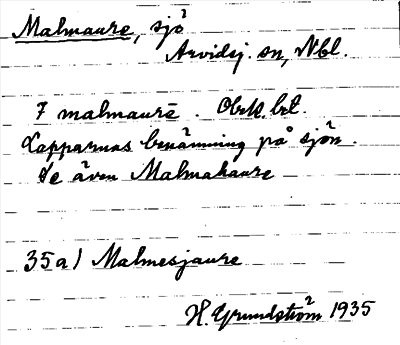 Malmaure, sjö
Arvidsj. sn, Nbl.
7 malmaurē. Obest. bet.
Lapparnas benämning på sjön.
Se även Malmahaure
35a) Malmesjaure
H. Grundström 1935